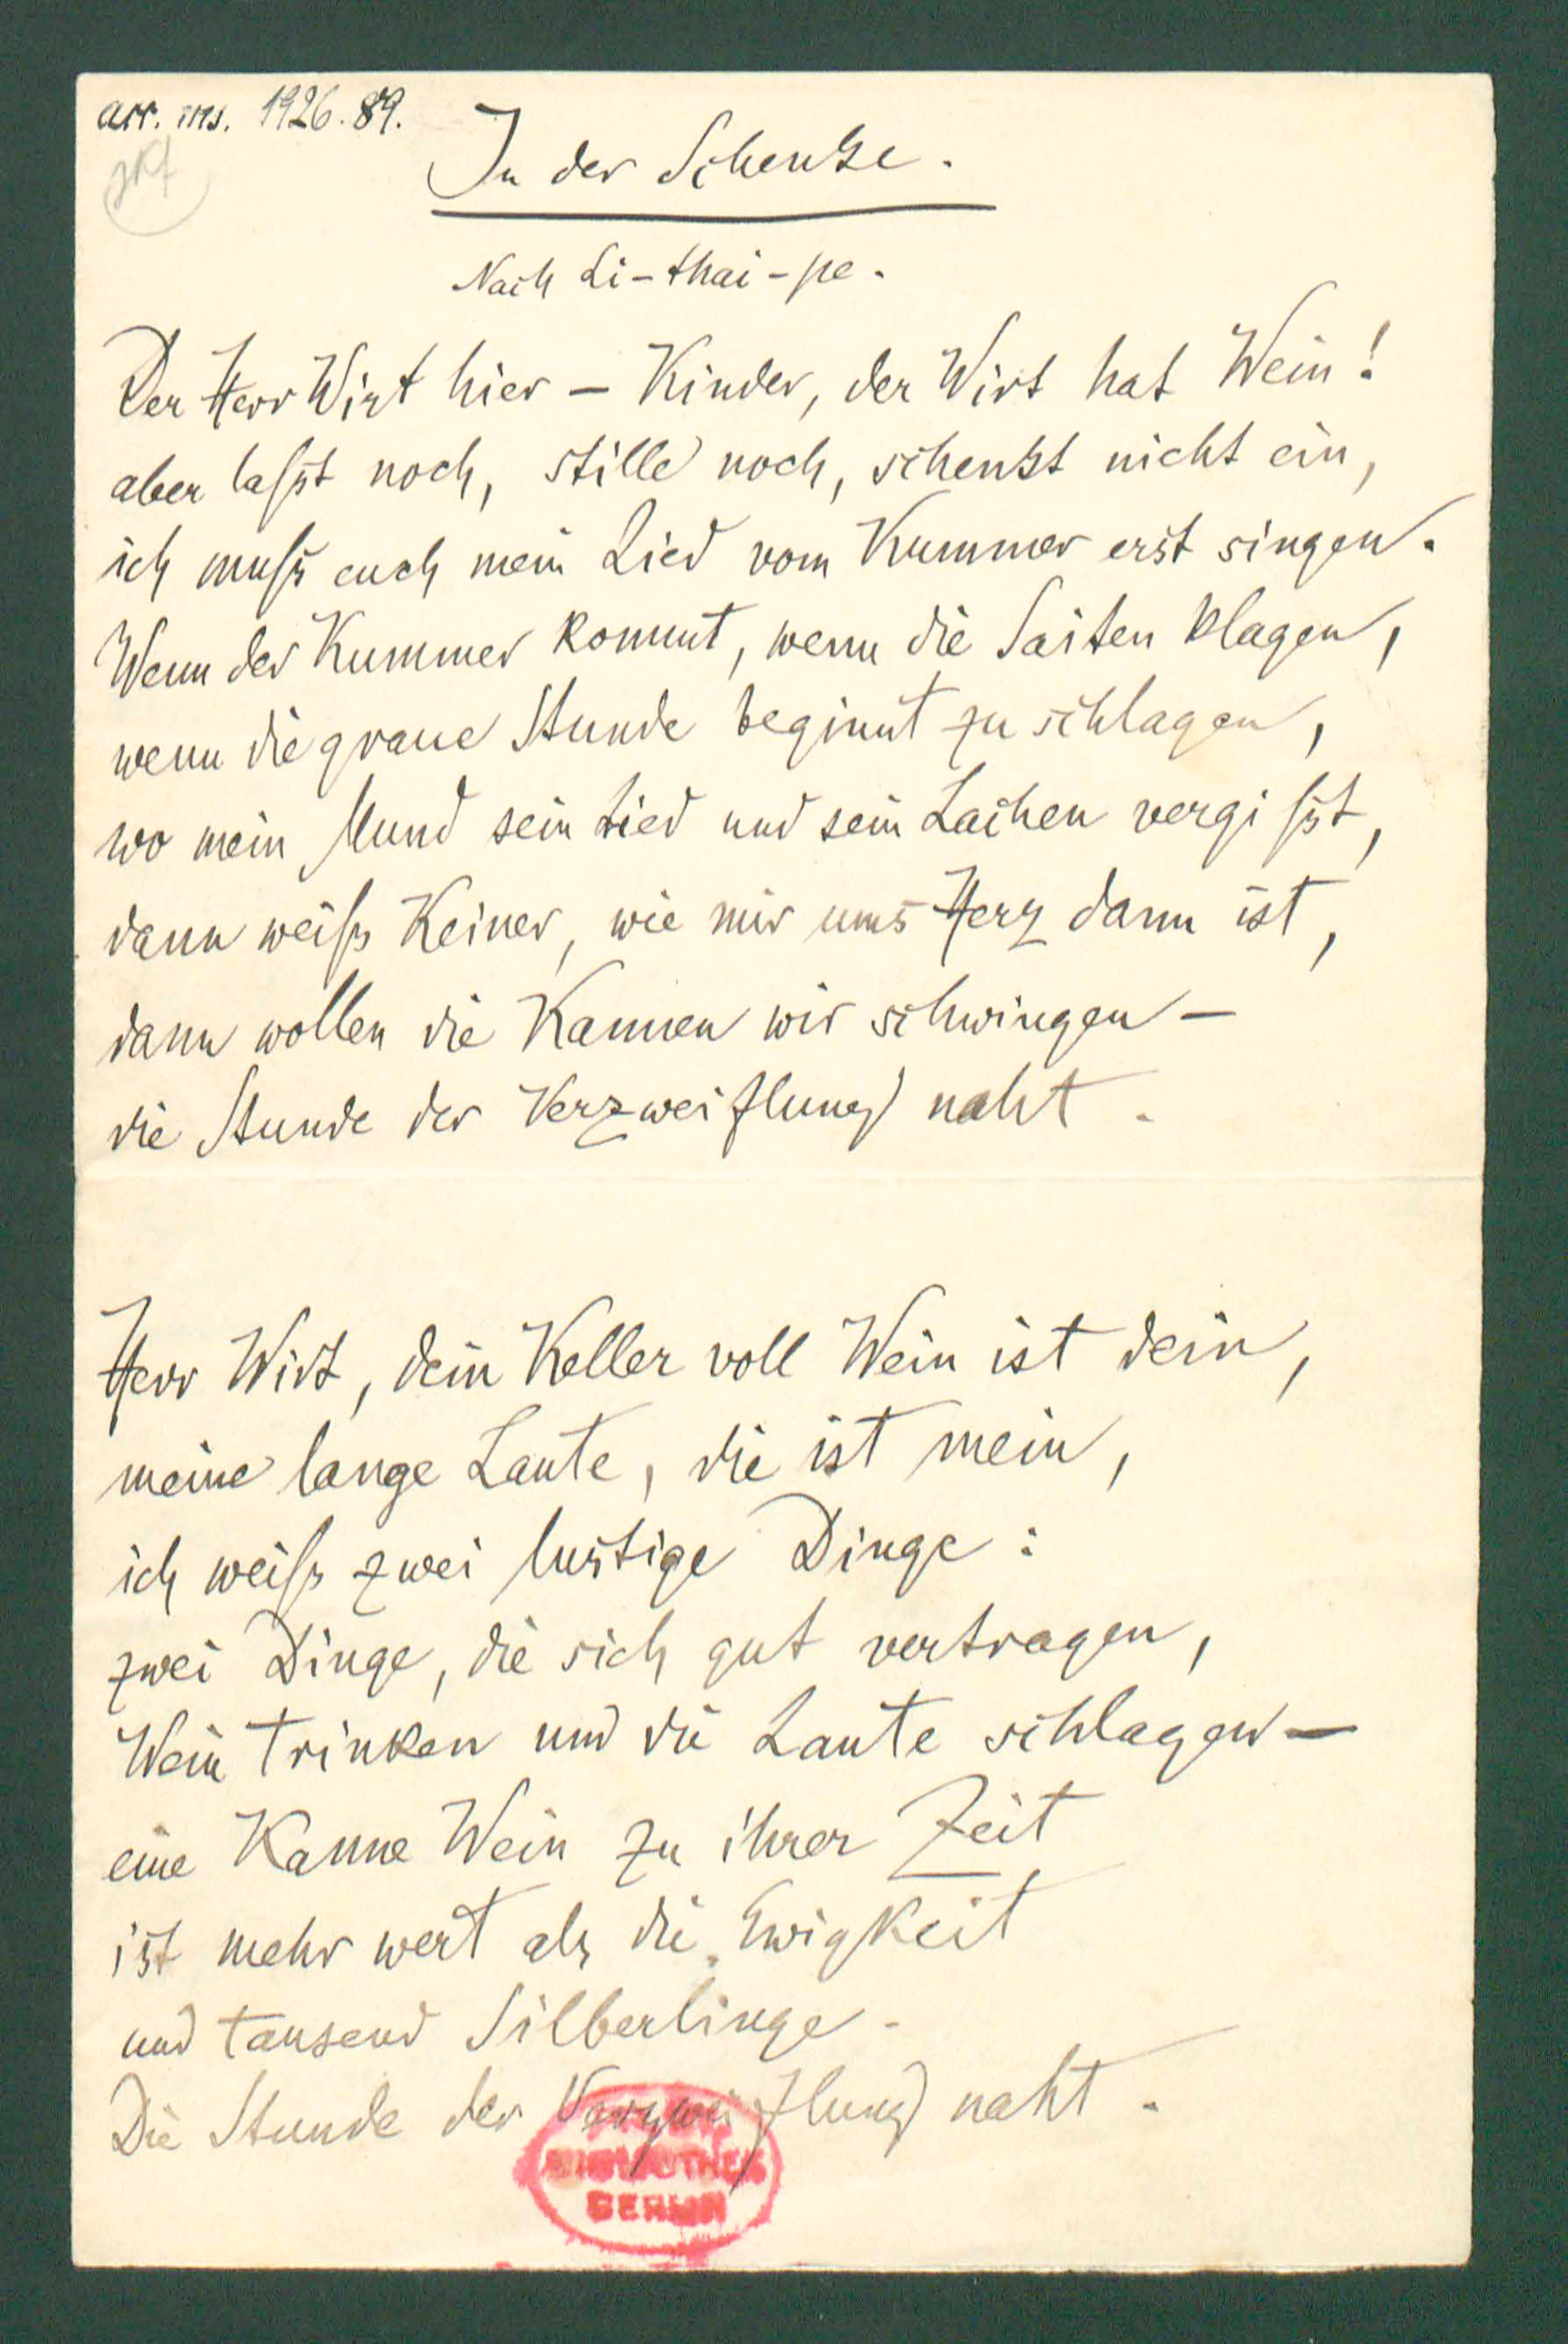 acc. ms. 1926. 89.
In der Schenke.
Nach Li-thai-pe.
Der Herr Wirt hier – Kinder, der Wirt hat Wein!
aber laßt noch, stille noch, schenkt nicht ein,
ich muß euch mein Lied vom Kummer erst singen.
Wenn der Kummer kommt, wenn die Saiten klagen,
wenn die graue Stunde beginnt zu schlagen,
wo mein Mund sein Lied und sein Lachen vergißt,
dann weiß Keiner, wie mir ums Herz dann ist,
dann wollen die Kannen wir schwingen –
die Stunde der Verzweiflung naht.
Herr Wirt, dein Keller voll Wein ist dein,
meine lange Laute, die ist mein,
ich weiß zwei lustige Dinge:
zwei Dinge, die sich gut vertragen,
Wein trinken und die Laute schlagen –
eine Kanne Wein zu ihrer Zeit
ist mehr wert als die Ewigkeit
und tausend Silberlinge.
Die Stunde der Verzweiflung naht.
BIBLIOTHEK
BERLIN